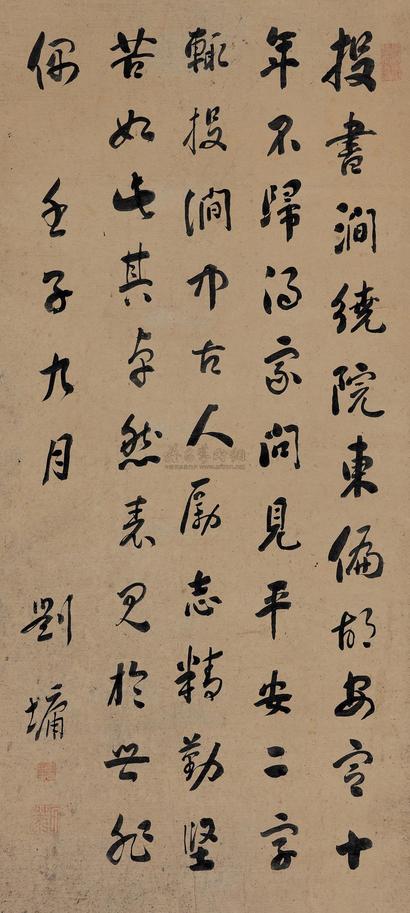 投書澗繞院東偏胡安定十
年不歸得家問見平安二字
輒投澗中古人勵志精勤堅
苦如此其卓然表見於世非
偶 壬子九月 劉墉